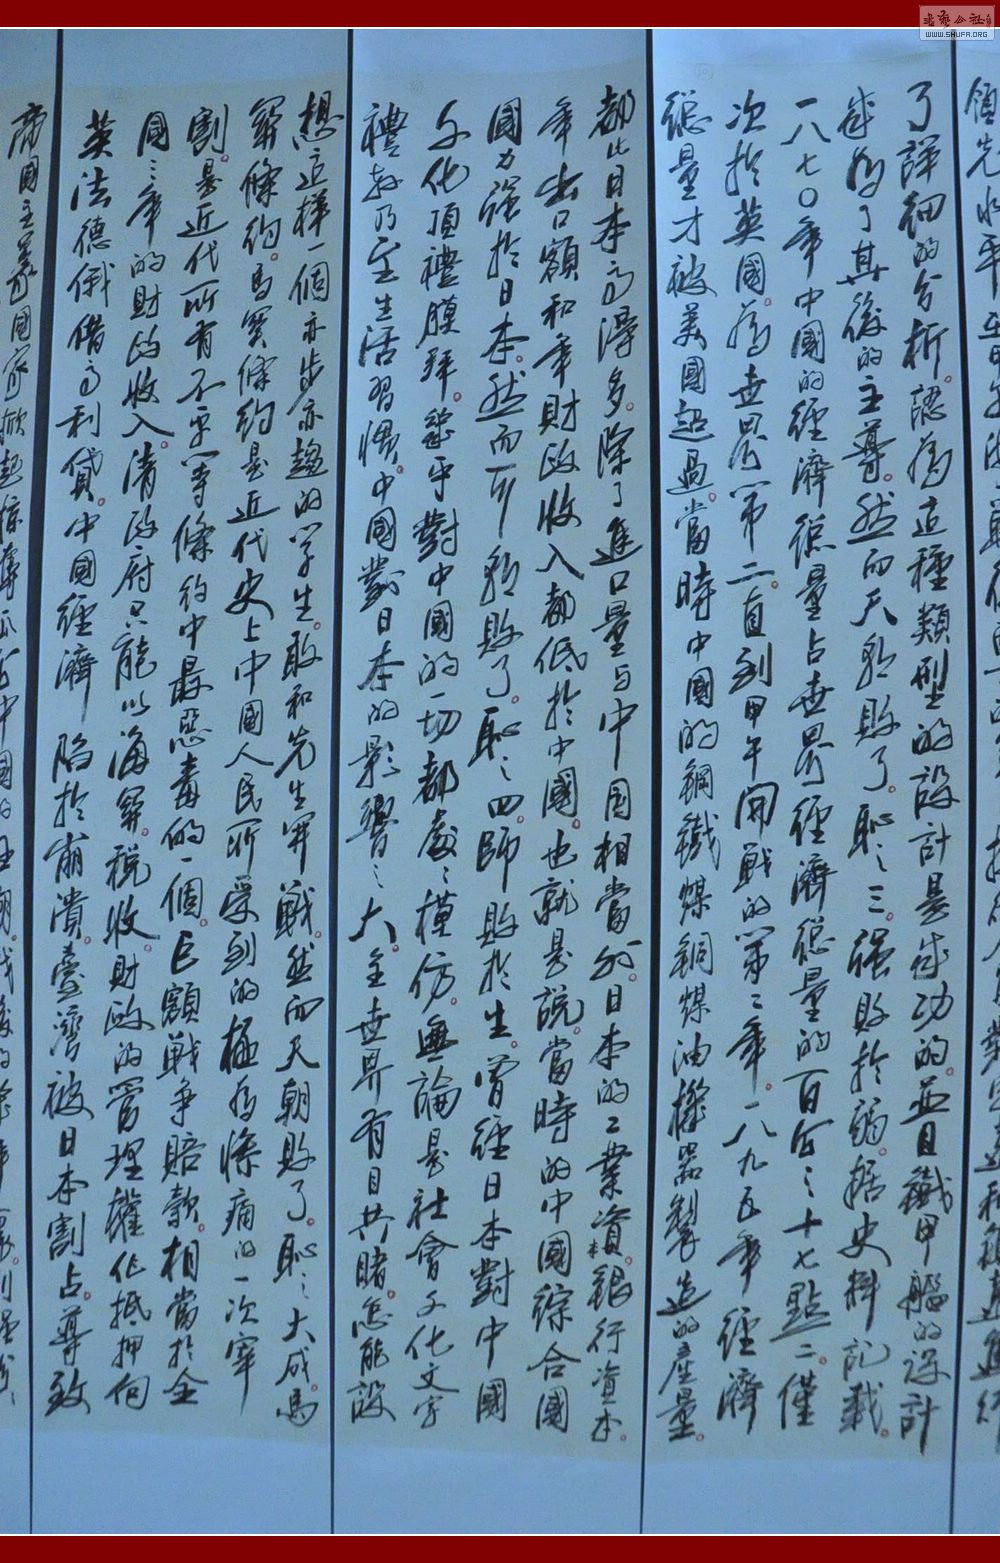 了詳細的分析。認為這種類型的設計是成功的。並且鐵甲艦的設計
成為了其後的主導。然而天朝敗了。恥之三。強敗於弱。据史料記載。
一八七〇年中國的經濟總量占世界經濟總量的百分之十七點二。僅
次於英國。為世界第二。直到甲午開戰的第二年。一八九五年經濟
總量才被美國超過。當時中國的鋼鐵煤銅煤油機器製造的產量。
都比日本高得多。除了進口量与中国相當外。日本的工業資本。銀行資本。
年出口額和年財政收入都低於中國。也就是說。當時的中國綜合國
國力強於日本。然而天朝敗了。恥之四。師敗於生。曾經日本對中國
文化頂禮膜拜。幾乎對中國的一切都處處模仿。無論是社會文化文字
禮教乃至生活習慣。中國對日本的影響之大。全世界有目共睹。怎能設
想這樣一個亦步亦趨的學生。敢和先生開戰。然而天朝敗了。恥之大成。馬
關條約。馬關條約是近代史上中國人民所受到的極為慘痛的一次宰
割。是近代所有不平等條約中最惡毒的一個。巨額戰爭賠款。相當於全
國三年的財政收入。清政府只能以海關。稅收。財政的管理權作抵押向
英法德俄借高利貸。中國經濟陷於崩潰。臺灣被日本割占。導致
帝國主義國家掀起掠奪瓜分中國的
書藝公社
WWW.SHUFA.ORG